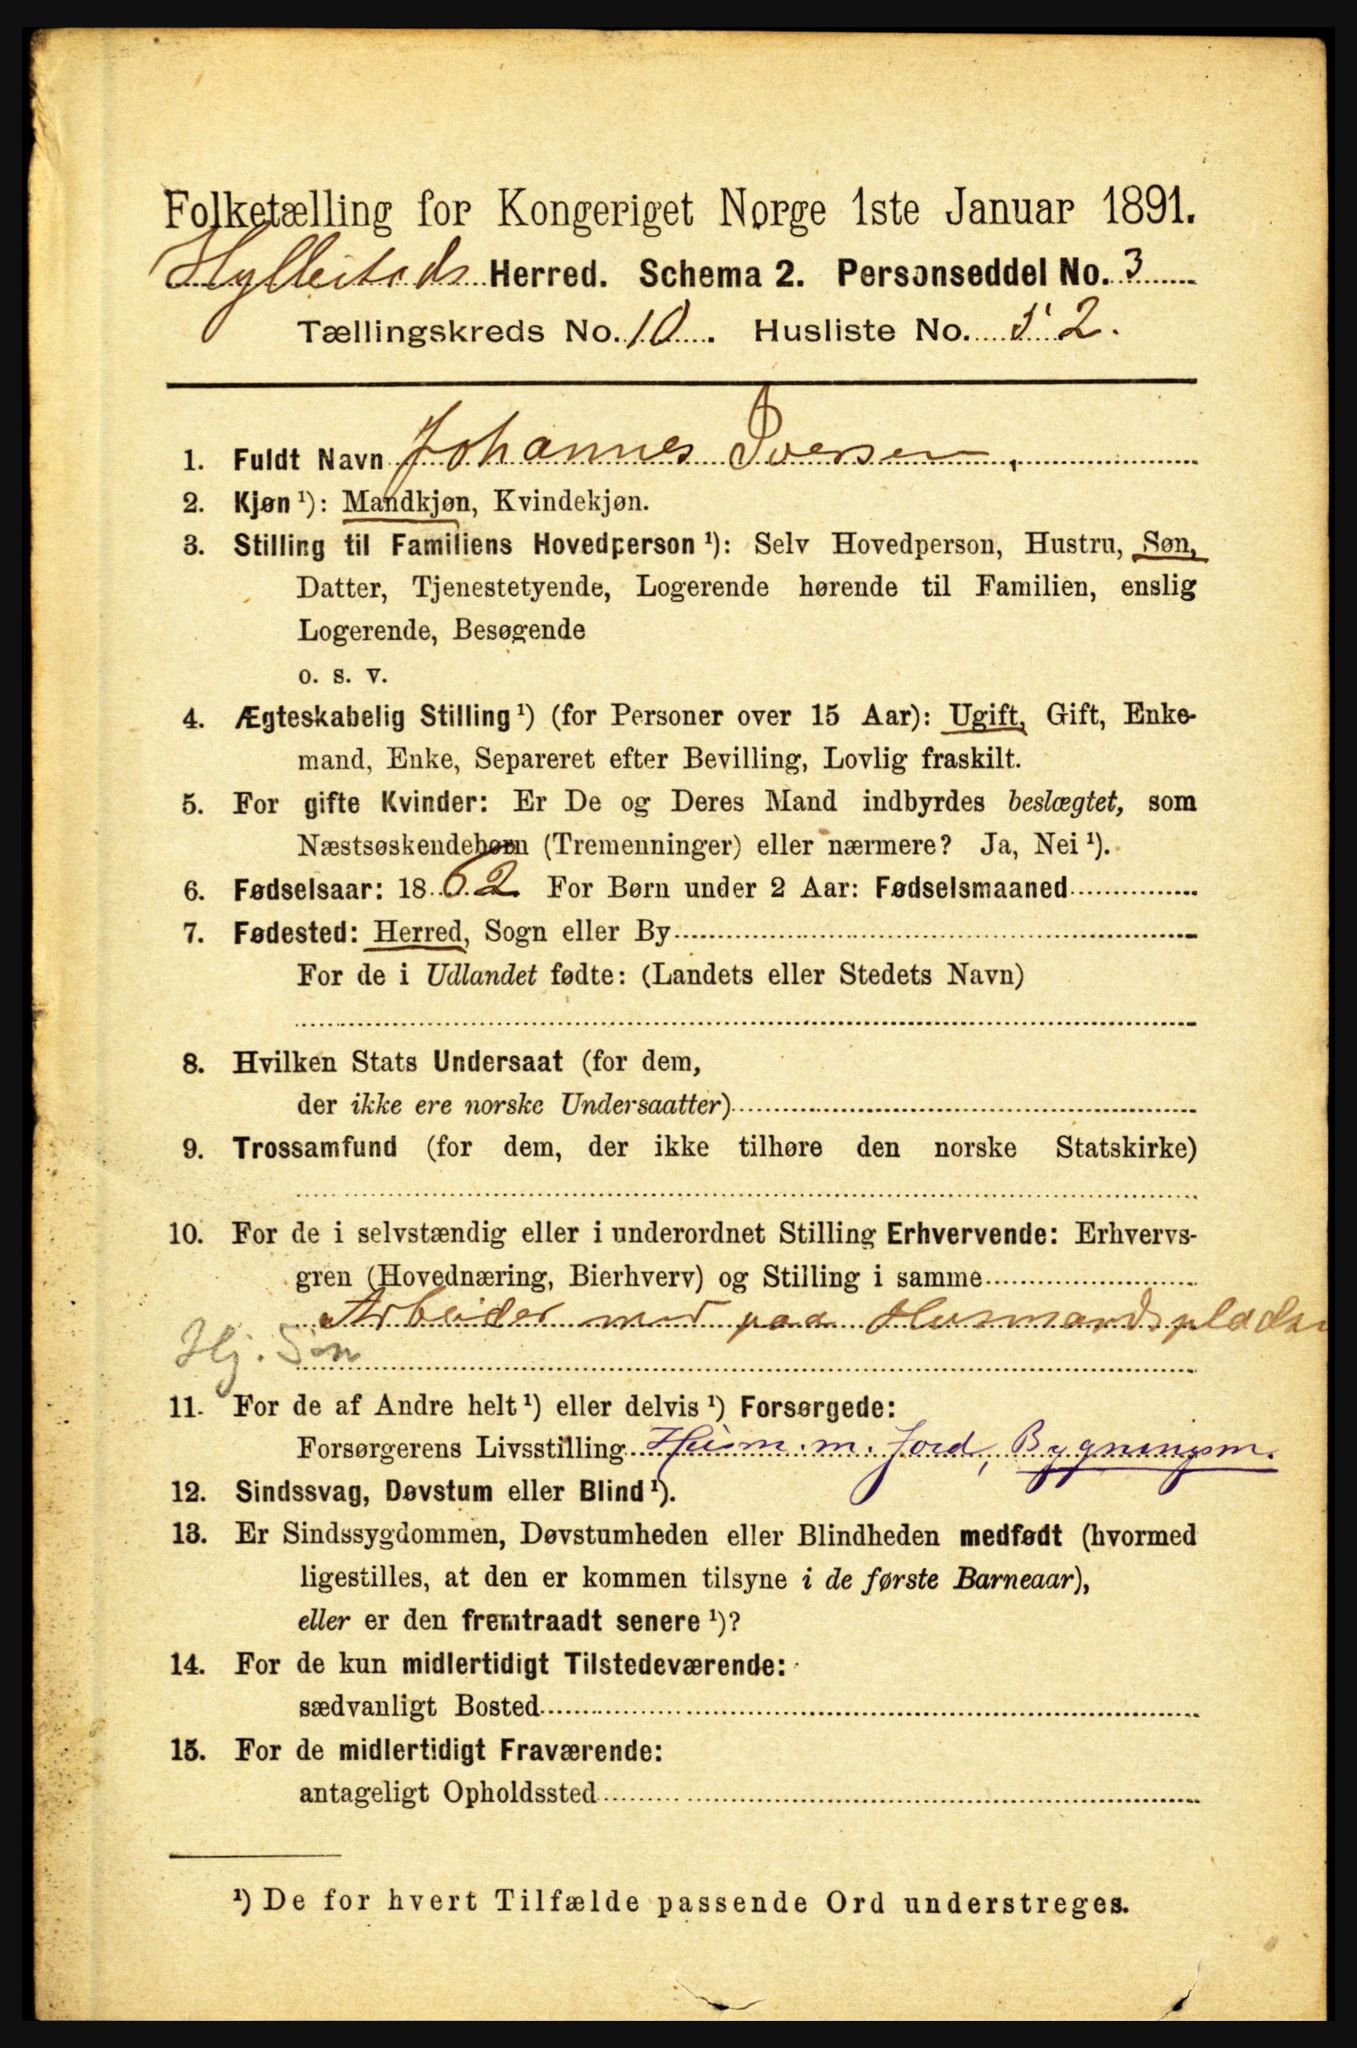 Folketælling for Kongeriget Norge 1ste Januar 1891.
Hyllestads Herred. Schema 2. Personseddel No. 3
Tællingskreds No. 10. Husliste No. 52.
1. Fuldt Navn Johannes Iversen,
2. Kjøn ¹): Mandkjøn, Kvindekjøn.
3. Stilling til Familiens Hovedperson ¹): Selv Hovedperson, Hustru, Søn,
Datter, Tjenestetyende, Logerende hørende til Familien, enslig
Logerende, Besøgende
o. s. v.
4. Ægteskabelig Stilling ¹) (for Personer over 15 Aar): Ugift, Gift, Enke-
mand, Enke, Separeret efter Bevilling, Lovlig fraskilt.
5. For gifte Kvinder: Er De og Deres Mand indbyrdes beslægtet, som
Næstsøskendebørn (Tremenninger) eller nærmere? Ja, Nei ¹).
6. Fødselsaar: 1862 For Børn under 2 Aar: Fødselsmaaned
7. Fødested: Herred, Sogn eller By
For de i Udlandet fødte: (Landets eller Stedets Navn)
8. Hvilken Stats Undersaat (for dem,
der ikke ere norske Undersaatter)
9. Trossamfund (for dem, der ikke tilhøre den norske Statskirke)
10. For de i selvstændig eller i underordnet Stilling Erhvervende: Erhvervs-
gren (Hovednæring, Bierhverv) og Stilling i samme
Arbeider med paa Husmandspladsen
Hj. Søn
11. For de af Andre helt ¹) eller delvis ¹) Forsørgede:
Forsørgerens Livsstilling Husm. m. Jord, Bygningsm.
12. Sindssvag, Døvstum eller Blind ¹).
13. Er Sindssygdommen, Døvstumheden eller Blindheden medfødt (hvormed
ligestilles, at den er kommen tilsyne i de første Barneaar),
eller er den fremtraadt senere ¹)?
14. For de kun midlertidigt Tilstedeværende:
sædvanligt Bosted
15. For de midlertidigt Fraværende:
antageligt Opholdssted
¹) De for hvert Tilfælde passende Ord understreges.